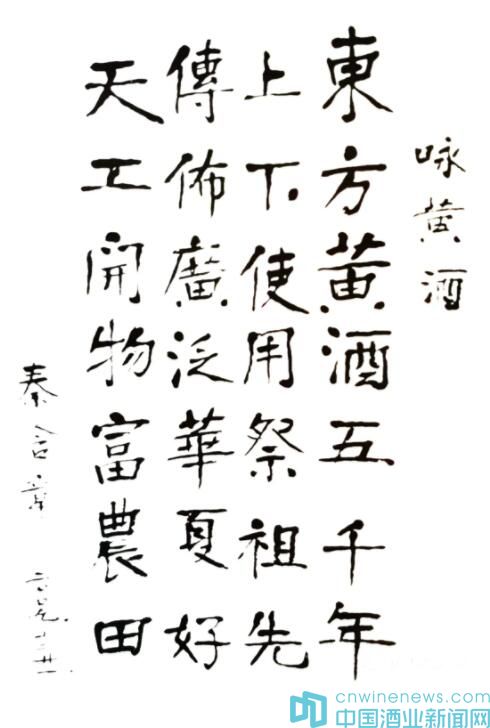 咏黄酒
東方黄酒五千年
上下使用祭祖先
傳佈廣泛華夏好
天工開物富農田
秦含章
cnwinenews.com
中国酒业新闻网